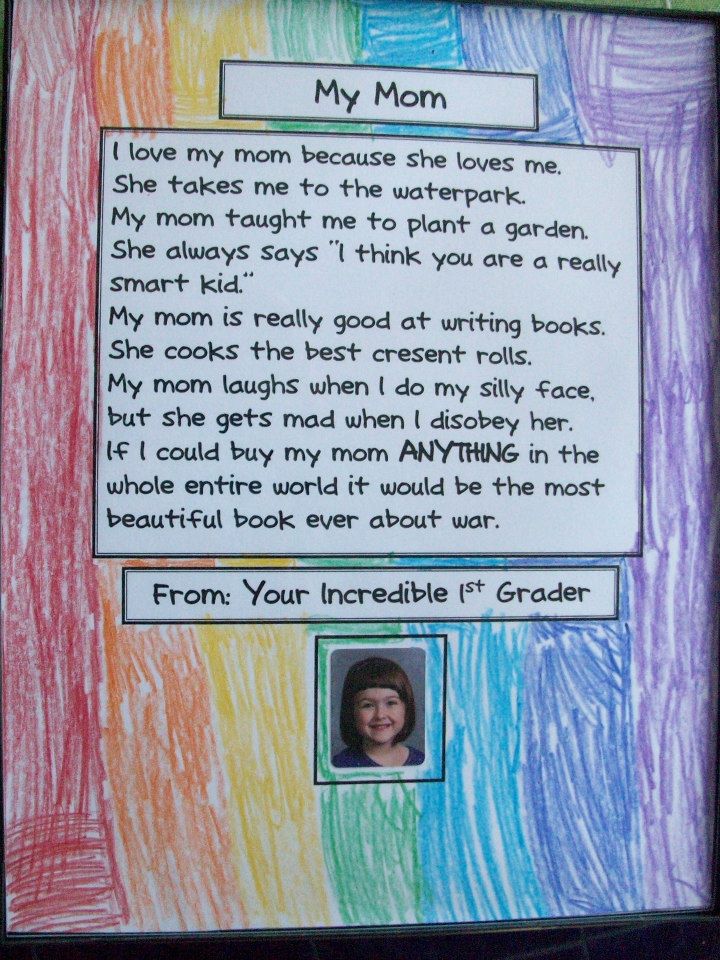 My Mom
I love my mom because she loves me.
She takes me to the waterpark.
My mom taught me to plant a garden.
She always says "I think you are a really
smart kid."
My mom is really good at writing books.
She cooks the best cresent rolls.
My mom laughs when I do my silly face,
but she gets mad when I disobey her.
If I could buy my mom ANYTHING in the
whole entire world it would be the most
beautiful book ever about war.
From: Your Incredible 1st Grader